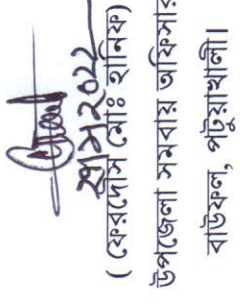 ( ফেরদৌস মোঃ হানিফ)
উপজেলা সমবায় অফিসার
বাউফল, পটুয়াখালী।